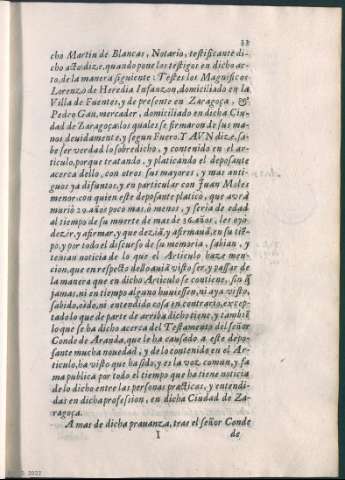 33
cho Martin de Blancas, Notario, testificante di-
cho acto dize, quando pone los testigos en dicho ac-
to, de la manera siguiente: Testes los Magnificos
Lorenzo de Heredia Infanzon, domiciliado en la
Villa de Fuentes, y de presente en Zaragoça, &
Pedro Gan, mercader, domiciliado en dicha Ciu-
dad de Zaragoça: los quales se firmaron de sus ma-
nos deuidamente, y segun Fuero. Y AVN dize, sa-
be ser verdad lo sobredicho, y contenido en el ar-
ticulo, porque tratando, y platicando el deposante
acerca dello, con otros sus mayores, y mas anti-
guos ya difuntos, y en particular con Juan Moles
menor, con quien este deposante platicò, que aurà
muriò 20. años poco mas, o menos, y seria de edad
al tiempo de su muerte de mas de 36. años, les oyò
dezir, y afirmar, y que dezia, y afirmauã, en su tiẽ-
po, y por todo el discurso de su memoria, sabian, y
tenian noticia de lo que el Articulo haze men-
cion, que en respecto dello auiã visto ser, y passar de
la manera que en dicho Articulo se contiene, sin q̃
jamas, ni en tiempo alguno huuiessen, ni aya visto,
sabido, oìdo, ni entendido cosa en contrario, excep-
tado lo que de parte de arriba dicho tiene, y tambiẽ
lo que se ha dicho acerca del Testamento del señor
Conde de Aranda, que le ha causado a este depo-
sante mucha nouedad, y de lo contenido en el Ar-
ticulo, ha visto que ha sido, y es la voz comun, y fa-
ma publica por todo el tiempo que ha tiene noticia
de lo dicho entre las personas practicas, y entendi-
das en dicha profession, en dicha Ciudad de Za-
ragoça.
A mas de dicha prouanza, tras el señor Conde
I de
2022